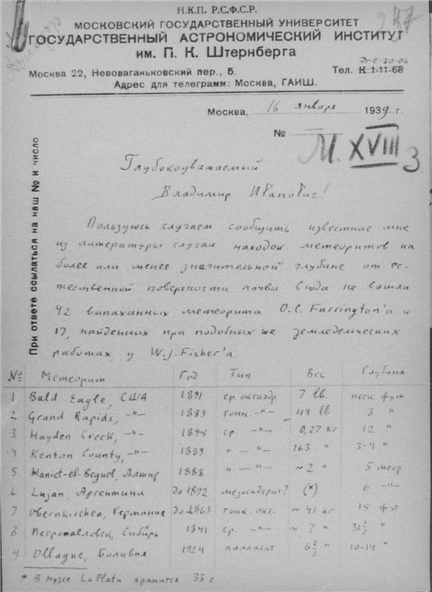 Н.К.П. Р.С.Ф.С.Р.
МОСКОВСКИЙ ГОСУДАРСТВЕННЫЙ УНИВЕРСИТЕТ
ГОСУДАРСТВЕННЫЙ АСТРОНОМИЧЕСКИЙ ИНСТИТУТ
им. П. К. Штернберга
Москва 22, Нововаганьковский пер., 5.
Тел. К 1-11-68
Адрес для телеграмм: Москва, ГАИШ.
Москва, 16 января 1939 г.
№
М. XVIII 3
При ответе ссылаться на наш № и число
Глубокоуважаемый
Владимир Иванович!
Пользуюсь случаем сообщить известные мне
из литературы случаи находок метеоритов на
более или менее значительной глубине от ес-
тественной поверхности почвы. Сюда не вошли
42 выпаханных метеорита O.C. Farrington'а и
17, найденных при подобных же земледельческих
работах, у W.J. Fisher'а.
№ Метеорит Год Тип Вес Глубина
1 Bald Eagle, США 1891 ср. октаэдр 7 lb. неск. фут
2 Grand Rapids, -"- 1883 тонк. -"- 114 lb 3 "
3 Hayden Creek, -"- 1895 ср. -"- 0,27 кг 12 "
4 Kenton County, -"- 1889 " -"- 163 " 3-4 "
5 Haniet-el-Beguel, Алжир 1888 " -"- ~2 " 5 метр
6 Lujan, Аргентина до 1892 мезосидерит? (*) 6 -"-
7 Obernkirchen, Германия до 1863 тонк. окт. ~41 кг 15 фут
8 Петропавловск, Сибирь 1841 ср. -"- ~7 " 31½ "
9 Ollague, Боливия 1924 палласит 6⅔ " "
* В музее La Plata хранится 33 г